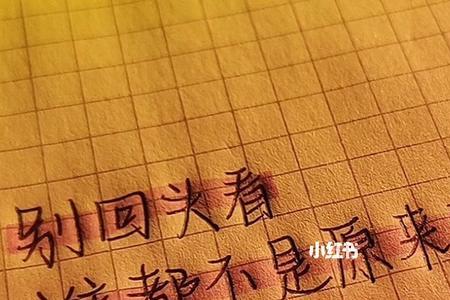 别回头看
谁都不是原来
小红书